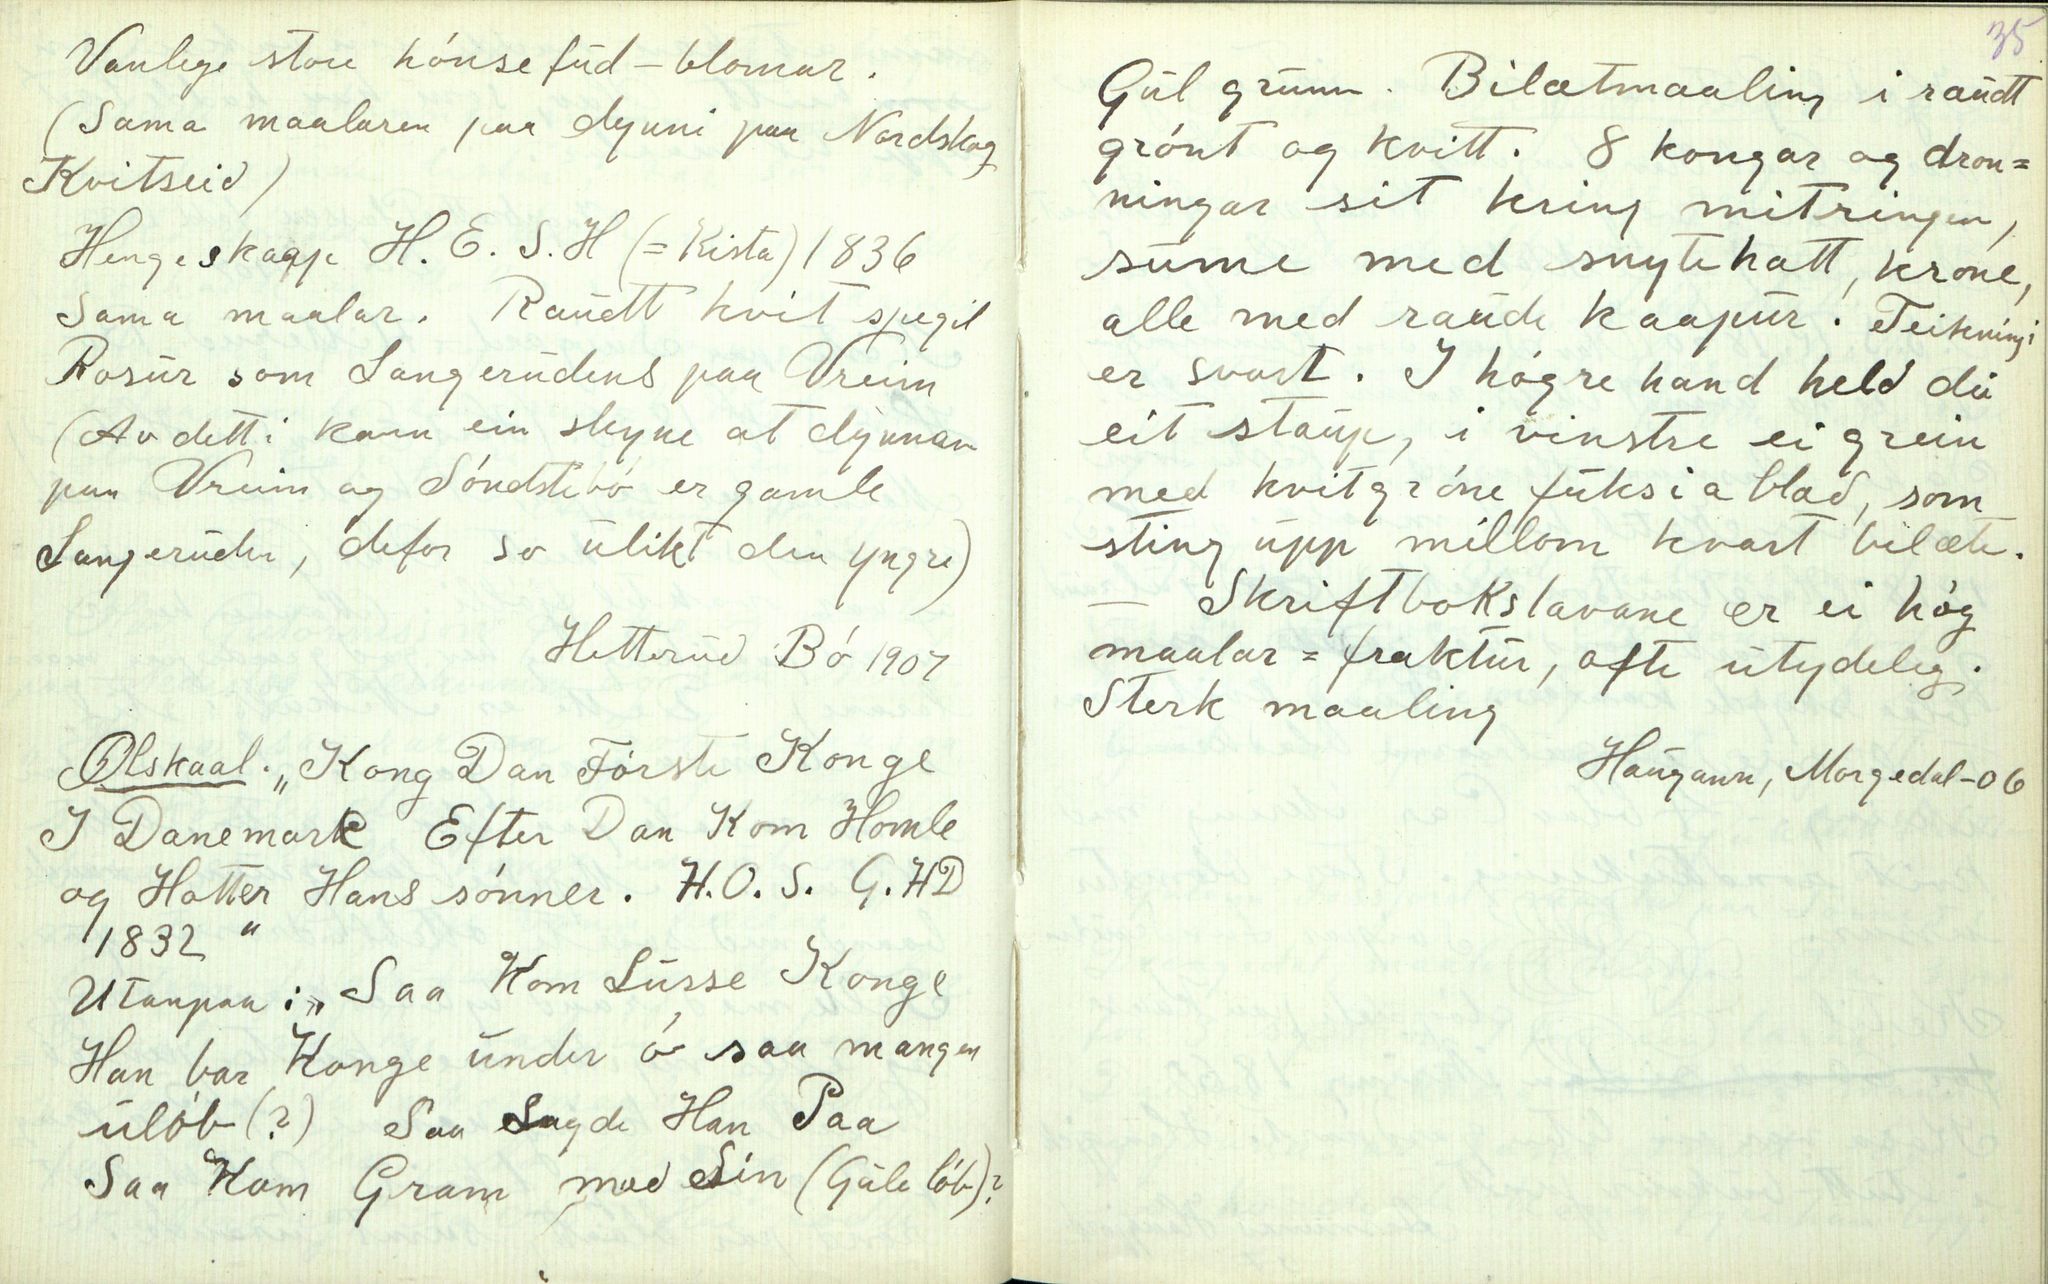 Vanlege store hónsefud-blomar.
(Sama maalaren paa dynni paa Nordskog
Kvitseid)
Hengeskaap H. E. S. H (= Kista) 1836
Sama maalar. Raudt kvit spegil
Rosur som Langerudens paa Vreim
(Av detti kann ein skyne at dynnan
paa Vreim og Sóndstebó er gamle
Langeruden, defor so ulikt den yngre)
Hetterud Bó 1907
Ølskaal. „Kong Dan Fórste Konge
I Danemark Efter Dan Kom Homle
og Hotter Hans sónner. H.O.S. G.HD
1832"
Utanpaa: „Saa Kom Lusse Konge
Han bar Konge under ó saa mangen
ulób (?) Saa Sagde Han Paa
Saa Kom Gram med Sin (Gule lób)?
35
Gul grunn. Bilætmaaling i raudt
grónt og kvitt. 8 kongar og dron=
ningar sit kring mitringen,
sume med snytehatt, krone,
alle med raude kaapur. Teikningi
er svart. I hógre hand held dei
eit staup, i vinstre ei grein
med kvitgróne fuksia blad, som
sting upp millom kvart bilæte.
— Skriftbokstavane er ei hóg
maalar=fraktur, ofte utydeleg.
Sterk maaling
Haugann, Morgedal-06